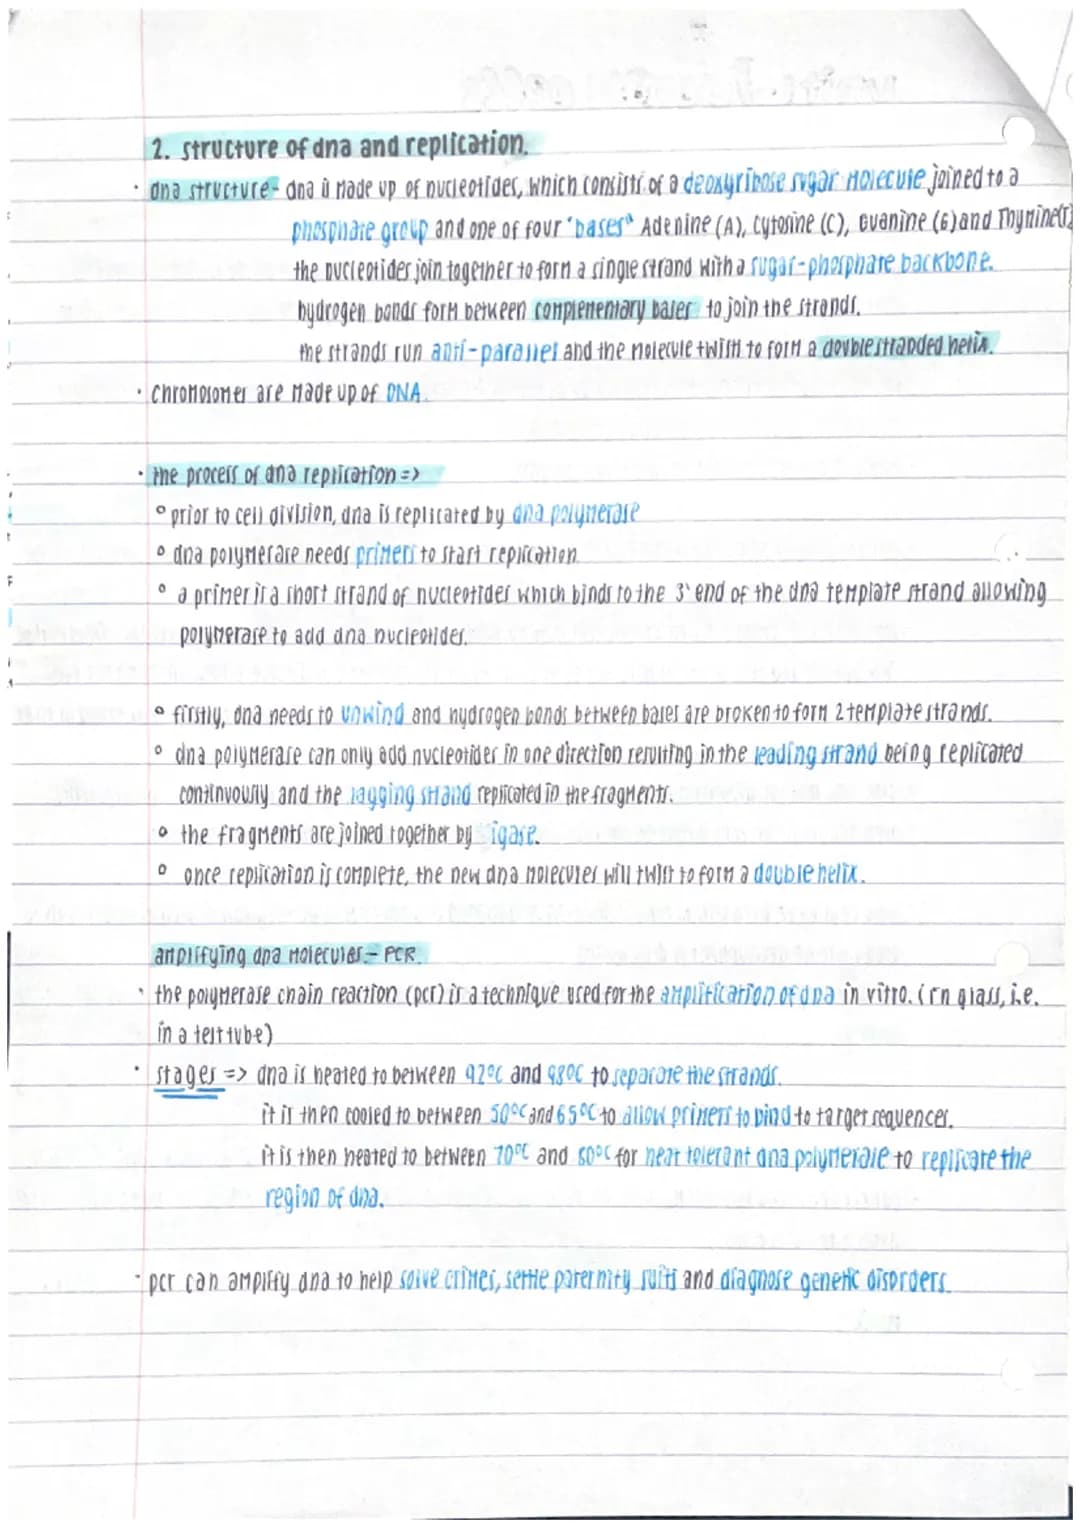 2. structure of dna and replication.
· dna structure - dna is made up of nucleotides, which consists of a deoxyribose sugar molecule joined to a
phosphate group and one of four "bases" Adenine (A), Cytosine (C), Guanine (G) and Thymine (T)
the nucleotides join together to form a single strand with a sugar-phosphate backbone.
hydrogen bonds form between complementary bases to join the strands.
the strands run anti-parallel and the molecule twist to form a double stranded helix.
· Chromosomes are made up of DNA.
· the process of dna replication =>
° prior to cell division, dna is replicated by dna polymerase
° dna polymerase needs primers to start replication.
° a primer is a short strand of nucleotides which binds to the 3' end of the dna template strand allowing
polymerase to add dna nucleotides.
° firstly, dna needs to unwind and hydrogen bonds between bases are broken to form 2 template strands.
° dna polymerase can only add nucleotides in one direction resulting in the leading strand being replicated
continuously and the lagging strand replicated in the fragments.
° the fragments are joined together by ligase.
° once replication is complete, the new dna molecules will twist to form a double helix.
amplifying dna molecules - PCR.
· the polymerase chain reaction (pcr) is a technique used for the amplification of dna in vitro. (in glass, i.e.
in a test tube)
· stages => dna is heated to between 92°C and 98°C to separate the strands.
it is then cooled to between 50°C and 65°C to allow primers to bind to target sequences.
it is then heated to between 70°C and 80°C for heat tolerant dna polymerase to replicate the
region of dna.
- pcr can amplify dna to help solve crimes, settle paternity suits and diagnose genetic disorders.